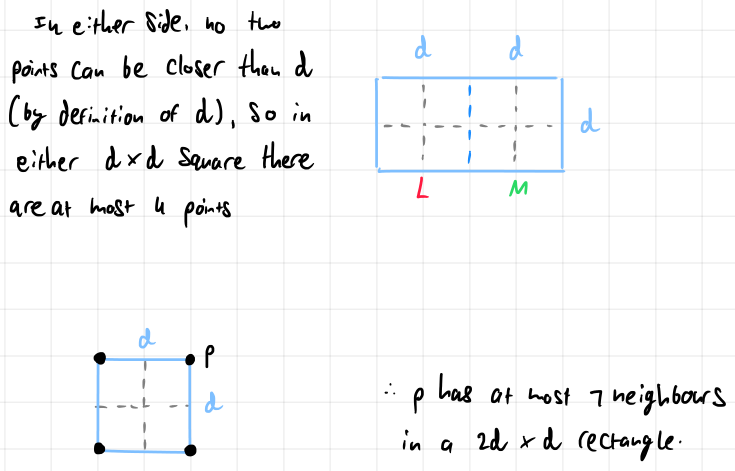 In either side, no two
points can be closer than d
(by definition of d), so in
either d x d square there
are at most 4 points
d d
d
L M
d
p
d
∴ p has at most 7 neighbours
in a 2d x d rectangle.